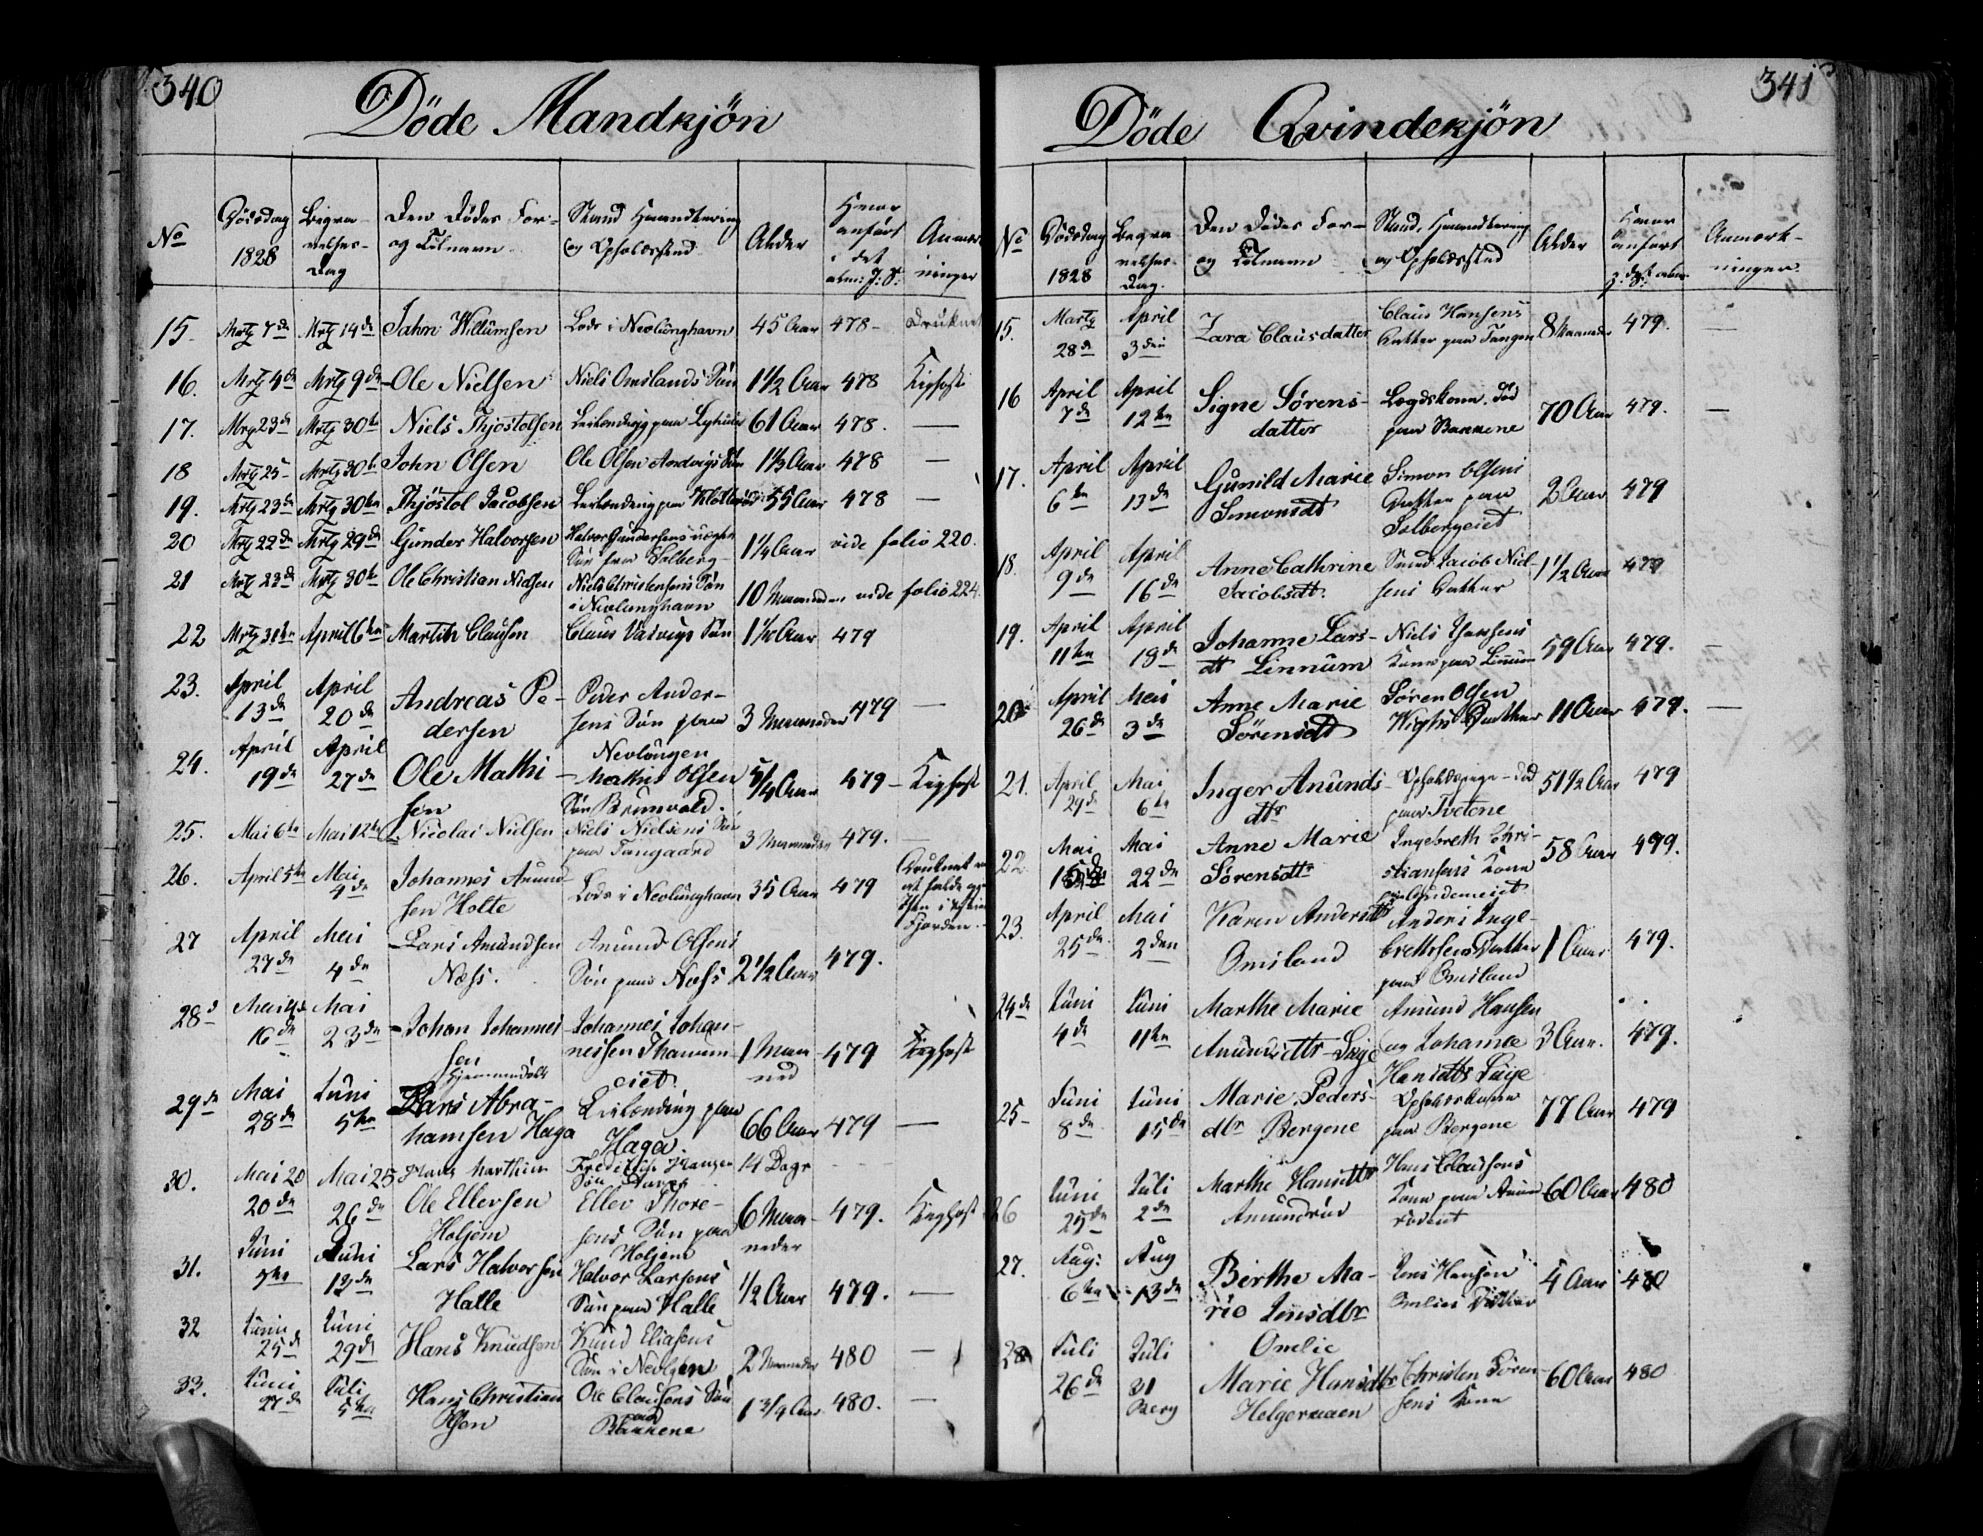 340
Döde Mandkjön
No
Dödsdag 1828
Begravelses-Dag
Den Dödes For- og Tilnavn
Stand Haandtering og Opholdssted
Alder
Hvor anført i det alm: J: S:
Anmærkninger
15. Mrtz 7de Mrtz 14de Jahn Willumsen Lods i Nevlunghavn 45 Aar 478 - Druknet
16. Mrtz 4de Mrtz 9de Ole Nielsen Niels Omslands Sön 1 1/2 Aar 478 Kighoste
17. Mrtz 23de Mrtz 30te Niels Thjostolsen 61 Aar 478. —
18 Mrtz 25 Mrtz 30te John Olsen Ole Olsen Sön 1 1/2 Aar 478 —
19. Mrtz 23de Mrtz 30te Thjöstol Jacobsen Leilænding paa 55 Aar 478 —
20 Mrtz 22de Mrtz 29de Gunder Halvorsen Halvor Gundersens Sön fra Solberg 1 1/4 Aar vide folio 220.
21 Mrtz 23de Mrtz 30te Ole Christian Nielsen Niels Christensens Sön i Nevlunghavn 10 Maaneder vide folio 224.
22 Mrtz 31te April 6te Martin Clausen Claus Sön 479
23. April 13de April 20de Andreas Pedersen Peder Andersens Sön paa Nevlungen 3 Maaneder 479 —
24. April 19de April 27de Ole Mathisen Mathis Olsen Sön Brunvald. 5/4 Aar 479 - Kighoste
25. Mai 6te Mai 12te Nicolai Nielsen Niels Nielsens Sön paa Fangaard 3 Maaneder 479. —
26. April 5te Mai 4de Johannes Amundsen Holte Lods i Nevlunghavn 35 Aar 479 Druknet
27 April 27de Mai 4de Lars Amundsen Næss. Amund Olsens Sön paa Næss 2 1/2 Aar 479.
28de Mai 16de Mai 23de Johan Johannessen Johannes Johannessen Thaumeiet 1 Maaned 479 Kighoste
29de Mai 28de Juni 5te Lars Abrahamsen Haga Leilænding paa Haga 66 Aar 479 —
30. Mai 20 Mai 25 Hans Marthin Fredrich Hansen Sön 14 Dage
20de 26de Ole Ellevsen Holjem Ellev Thoresens Sön paa Holjem 6 Maaneder 479. Kighoste
31. Juni Juni 13de Lars Halvorsen Halle Halvor Larsens Sön paa Halle 1/2 Aar 479. —
32 Juni 25de Juni 29de Hans Knudsen Knud Eliasens Sön i Nevlgbn 2 Maaneder 480 —
33. Juni 27de Juli 5te Hans Christian Olsen Ole Clausens Sön paa Bakkene 1 3/4 Aar 480. —
341
Döde Qvindekjön
No
Dödsdag 1828
Begravelses-Dag.
Den Dödes For- og Tilnavn
Stand, Haandtering og Opholdssted
Alder
Hvor anført
Anmærkninger.
15. Martz 28de April 3die Zara Clausdatter Claus Hansens Datter paa Tangen 8 Maaneder 479. —
16 April 7de April 12te Signe Sörensdatter Lægdskone, död paa Bakkene 70 Aar 479. —
17. April 6te April 13de Gunild Marie Simonsdt Simon Olsens Datter paa Solbergeiet 2 Aar 479
18. April 9de April 16de Anne Cathrine Jacobsdt. Smed Jacob Nielsens Datter 1 1/2 Aar 479
19. April 11te April 18de Johanne Larsdt Linnum Niels Kone paa Linnum 59 Aar 479.
20 April 26de Mai 3de Anne Marie Sörensdt Sören Olsen Datter 11 Aar 479. —
21. April 29de Mai 6te Inger Amundsdtr död paa Tvetene 51 1/2 Aar 479
22. Mai 15de Mai 22de Anne Marie Sörensdtr Ingebreth Christiansens Kone 58 Aar 499.
23. April 25de Mai 2den Karen Andersdtr Omsland Anders Ingebrethsens Datter paa Omsland 1 Aar 479.
24de Juni 4de Juni 11te Marthe Marie Amundsdtr Skije Amund Hansen og Johanne Hansdtr Skije 3 Aar. 479.
25 Juni 8de Juni 15de Marie Pedersdtr Bergene paa Bergene 77 Aar 479
26 Juni 25de Juli 2de Marthe Hansdtr Amundröd Hans Clausens Kone paa Amundrödeiet 60 Aar 480
27. Aug: 6te Aug 13de Birthe Marie Jensdtr Omlie Jens Hansen Omlies Datter 4 Aar 480
28 Juli 26de Juli 31 Berg Marie Hansdtr Helgeraaen Christen Sörensens Kone 60 Aar 480